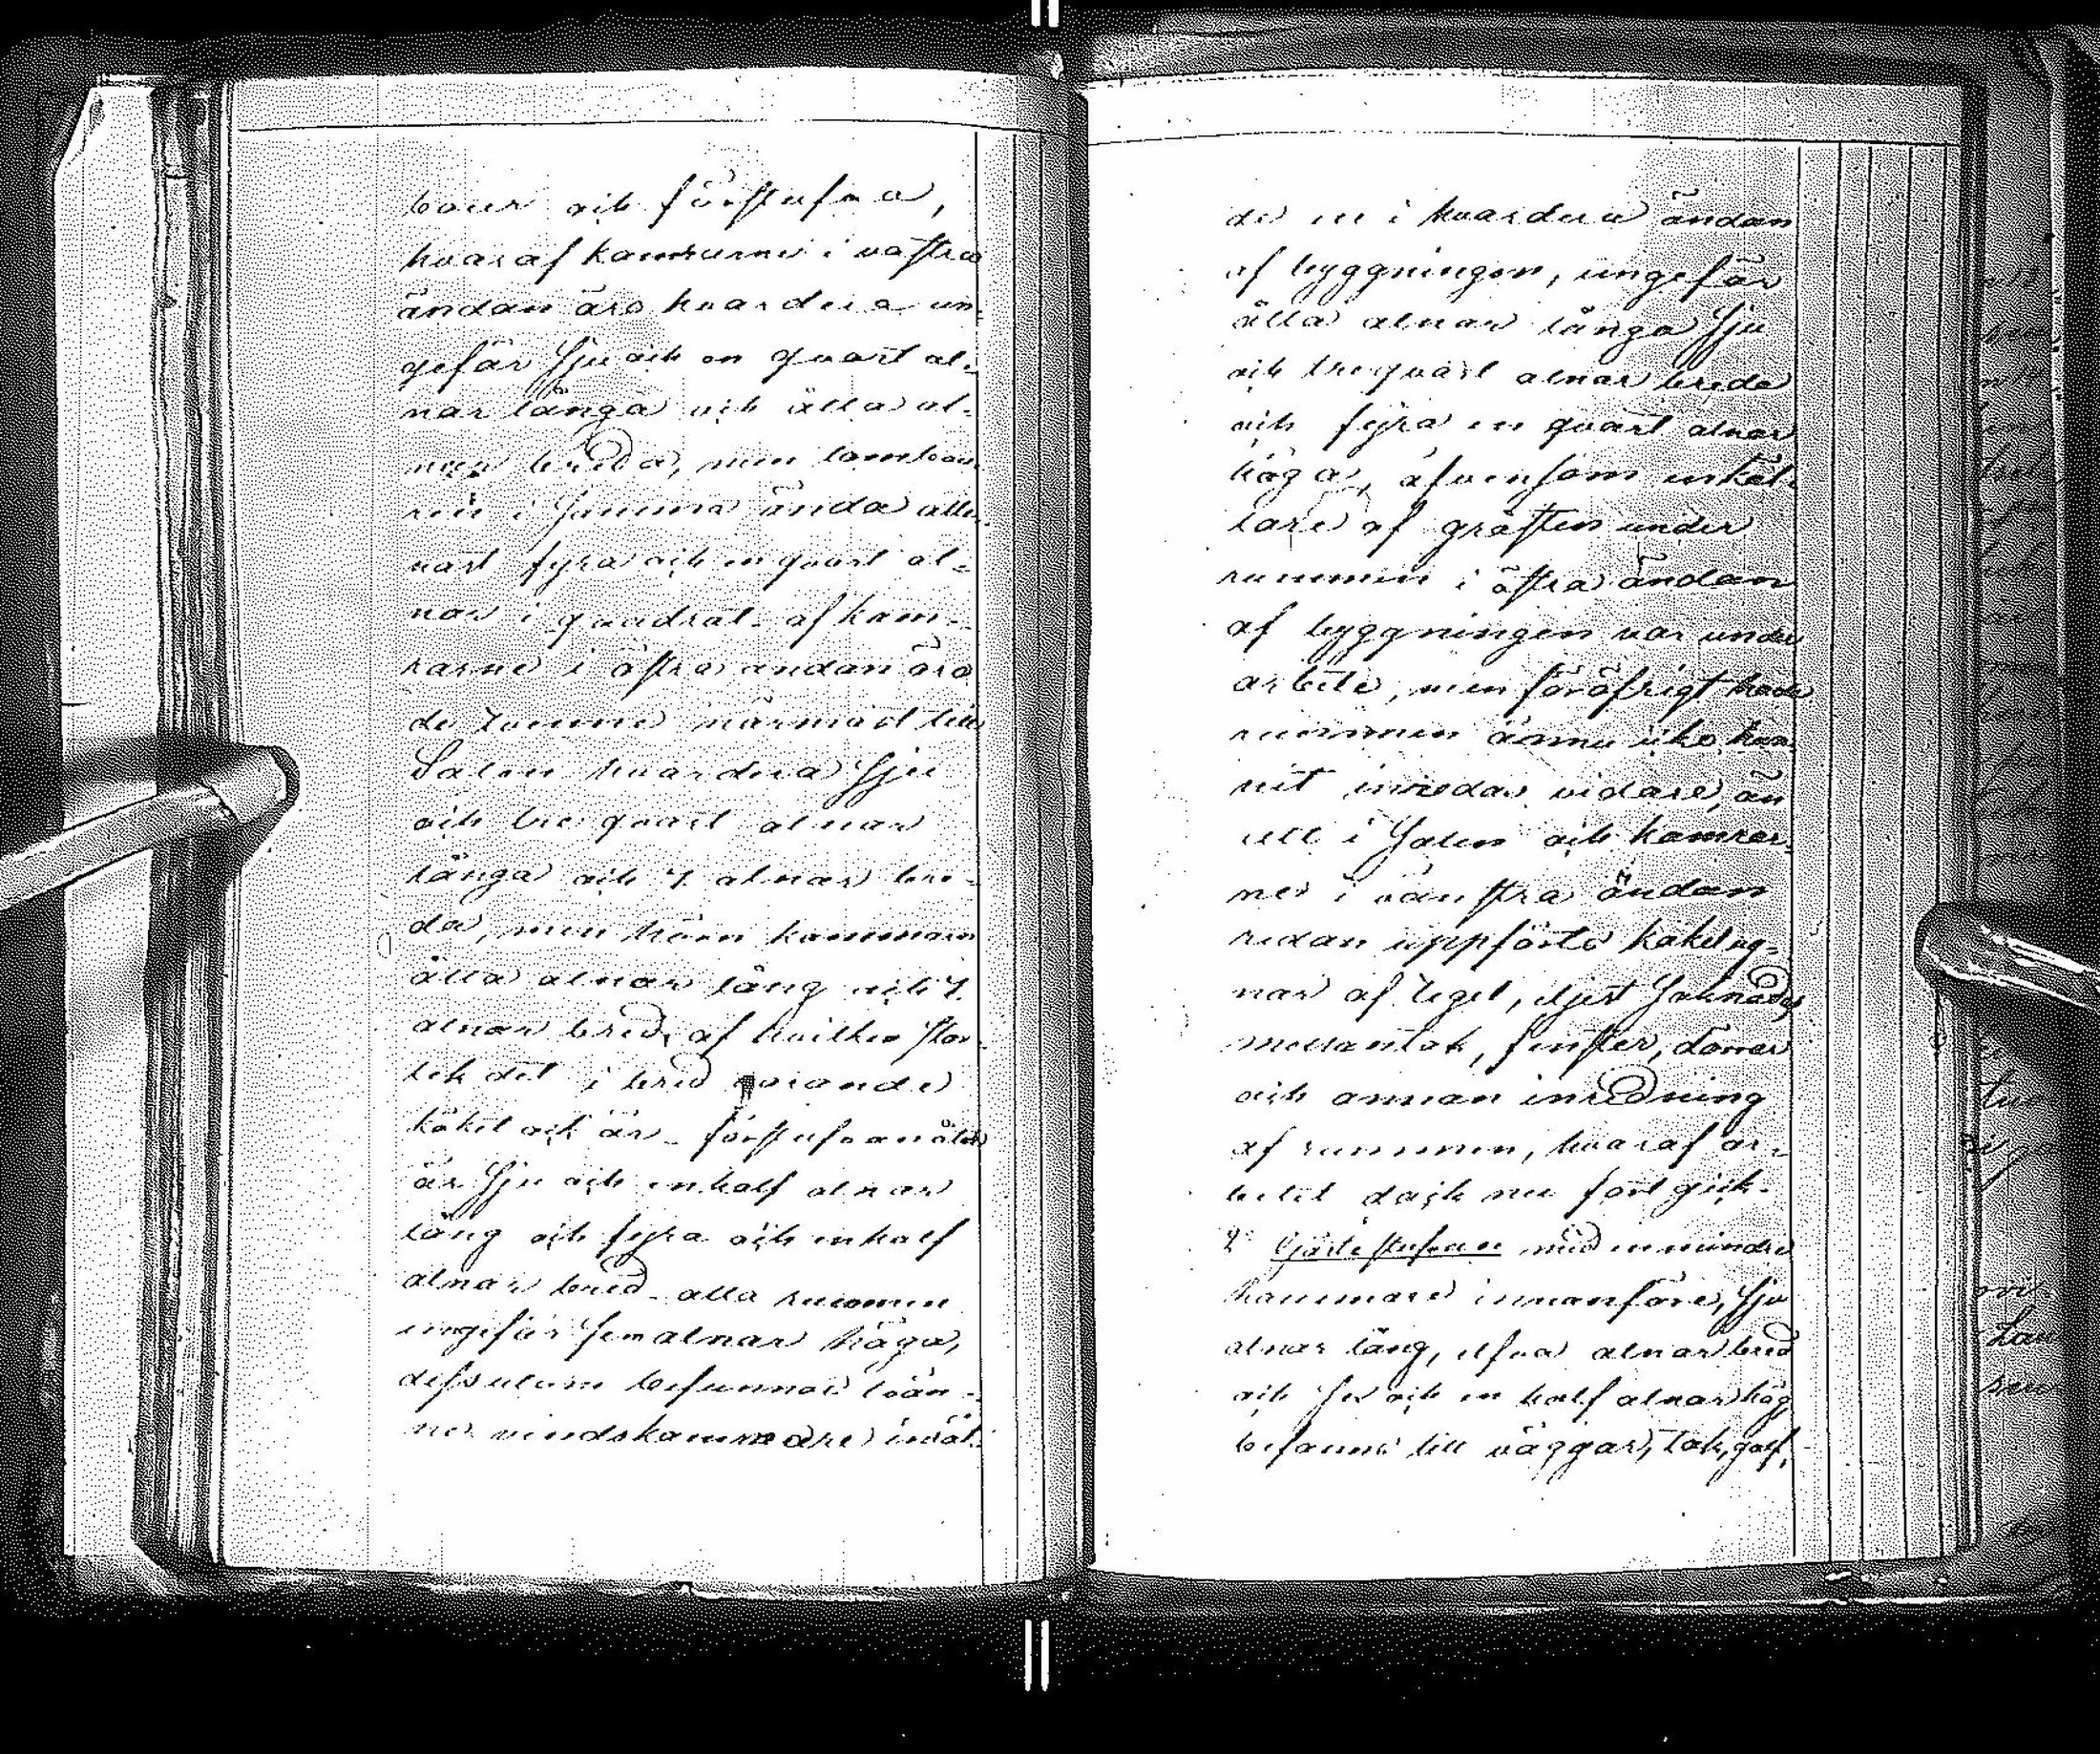 bour och förstufva,
hvaraf kamrarne i västra
ändan äro hvardera un-
gefär sju och en quart al-
nar långa och åtta al-
nar breda, men tambou-
ren i samma ända alle-
nast fyra och en quart al-
nar i quadrat. af kam-
rarne i östra ändan äro
de tvenne närmast till
Salen hvardera sju
och tre quart alnar
långa och 7 alnar bre-
da, men hörn kammaren
åtta alnar lång och 7.
alnar bred, af hvilken stor-
lek det i bred varande
köket ock är. förstufvan åter
är sju och en half alnar
lång och fyra och en half
alnar bred. alla rummen
ungefär fem alnar höga,
dessutom befunnos tvän-
ne vindskammare inrät-
de en i hvardera ändan
af byggningen, ungefär
åtta alnar långa sju
och tre quart alnar breda
och fyra en quart alnar
höga, äfvensom en käl-
lare af gråsten under
rummen i östra ändan
af byggningen var under
arbete, men föröfrigt hade
rummen ännu icke hun-
nit inredas vidare, än
att i Salen och kamrar-
ne i vänstra ändan
redan uppförts kakelug-
nar af tegel, eljest saknades
mellantak, fenster, dörrar
och annan inredning
af rummen, hvaraf ar-
betet dock nu fort gick.
2° Gästestufvan med en mindre
kammare innanföre, sju
alnar lång, elfva alnar bred
och fem och en half alnar hög
befanns till väggar, tak, golf,